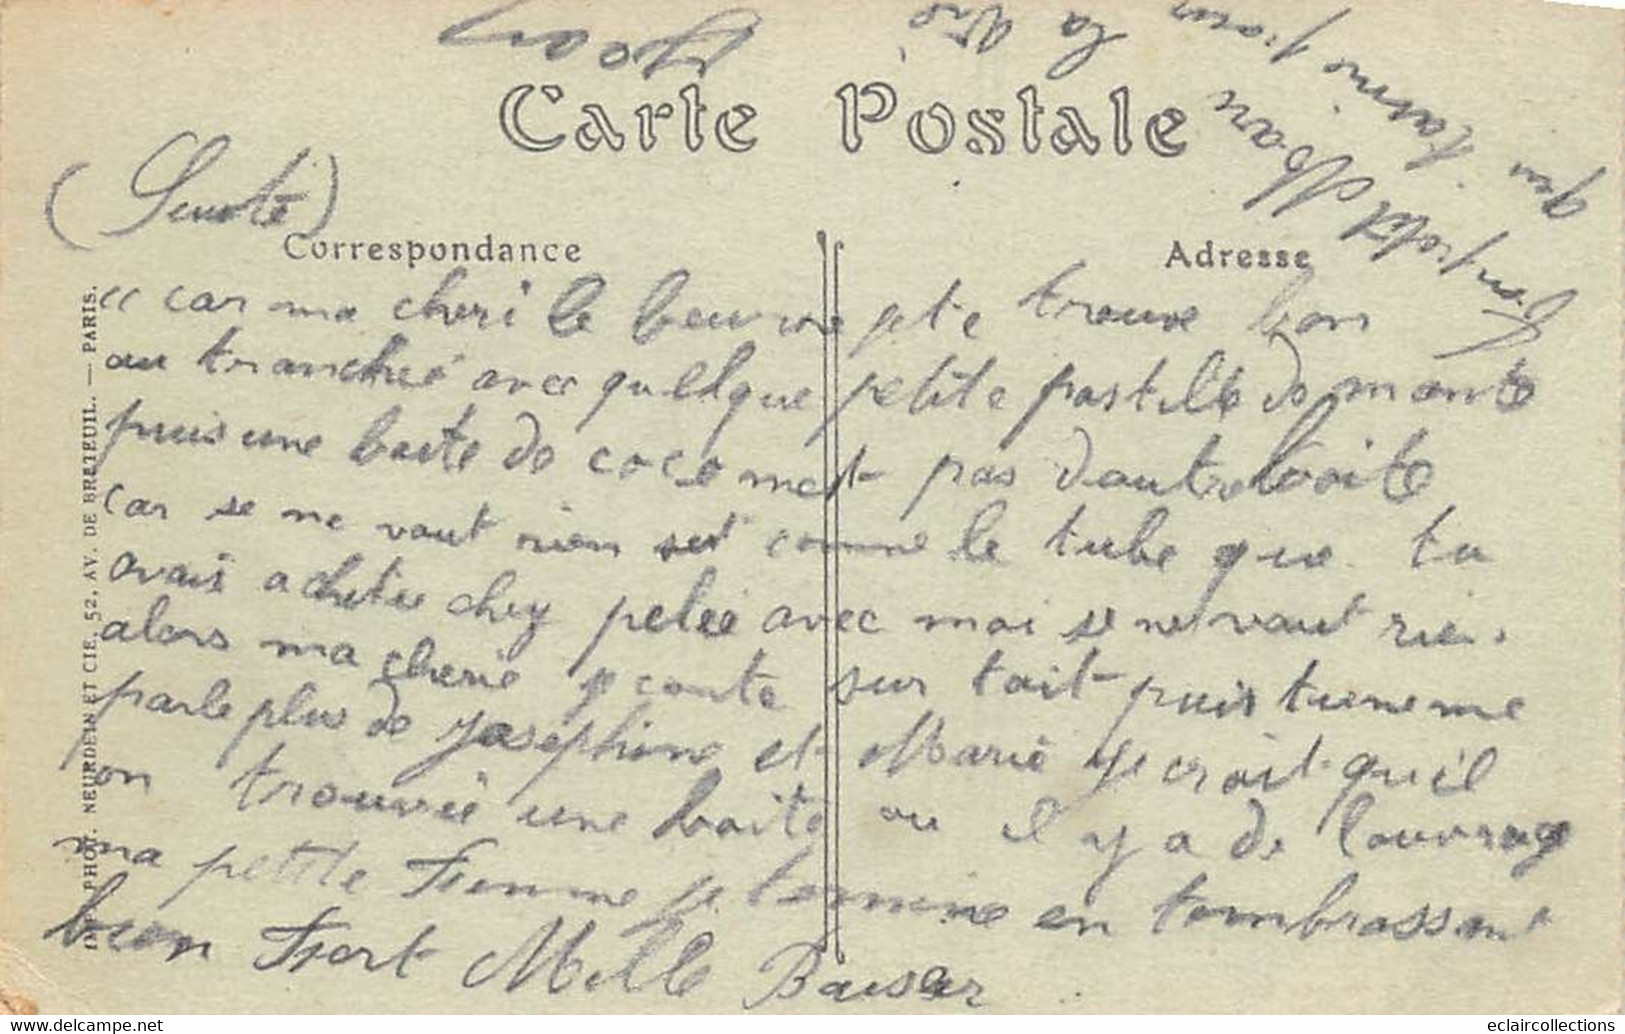 Carte Postale
(Suite)
Correspondance
Adresse
car ma cheri le beurre je te trouve bon
au tranchée avec quelque petite pastille de mente
puis une boite de coco met pas dautre boite
car se ne vaut rien set comme le tube que tu
avais achetée chez pelée avec moi se ne vaut rien.
alors ma cherie je conte sur toit puis tu ne me
parle plus de Josephine et Marie je croit quil
on trouvée une boite ou il y a de louvrage
ma petite Femme je termine en tembrassant
bien Fort Mille Baiser
Ton petit
qui taime pour la vie
IMP. PHOT. NEURDEIN ET CIE, 52, AV. DE BRETEUIL. — PARIS.
eclaircollections